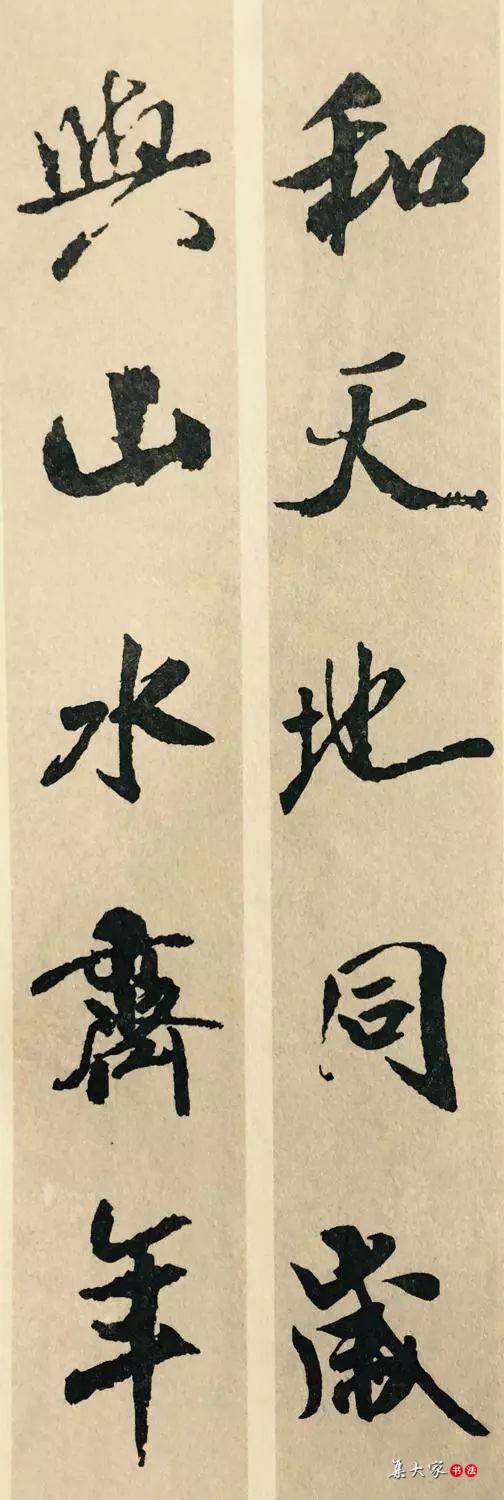 和天地同歲
與山水齊年
集大家書法